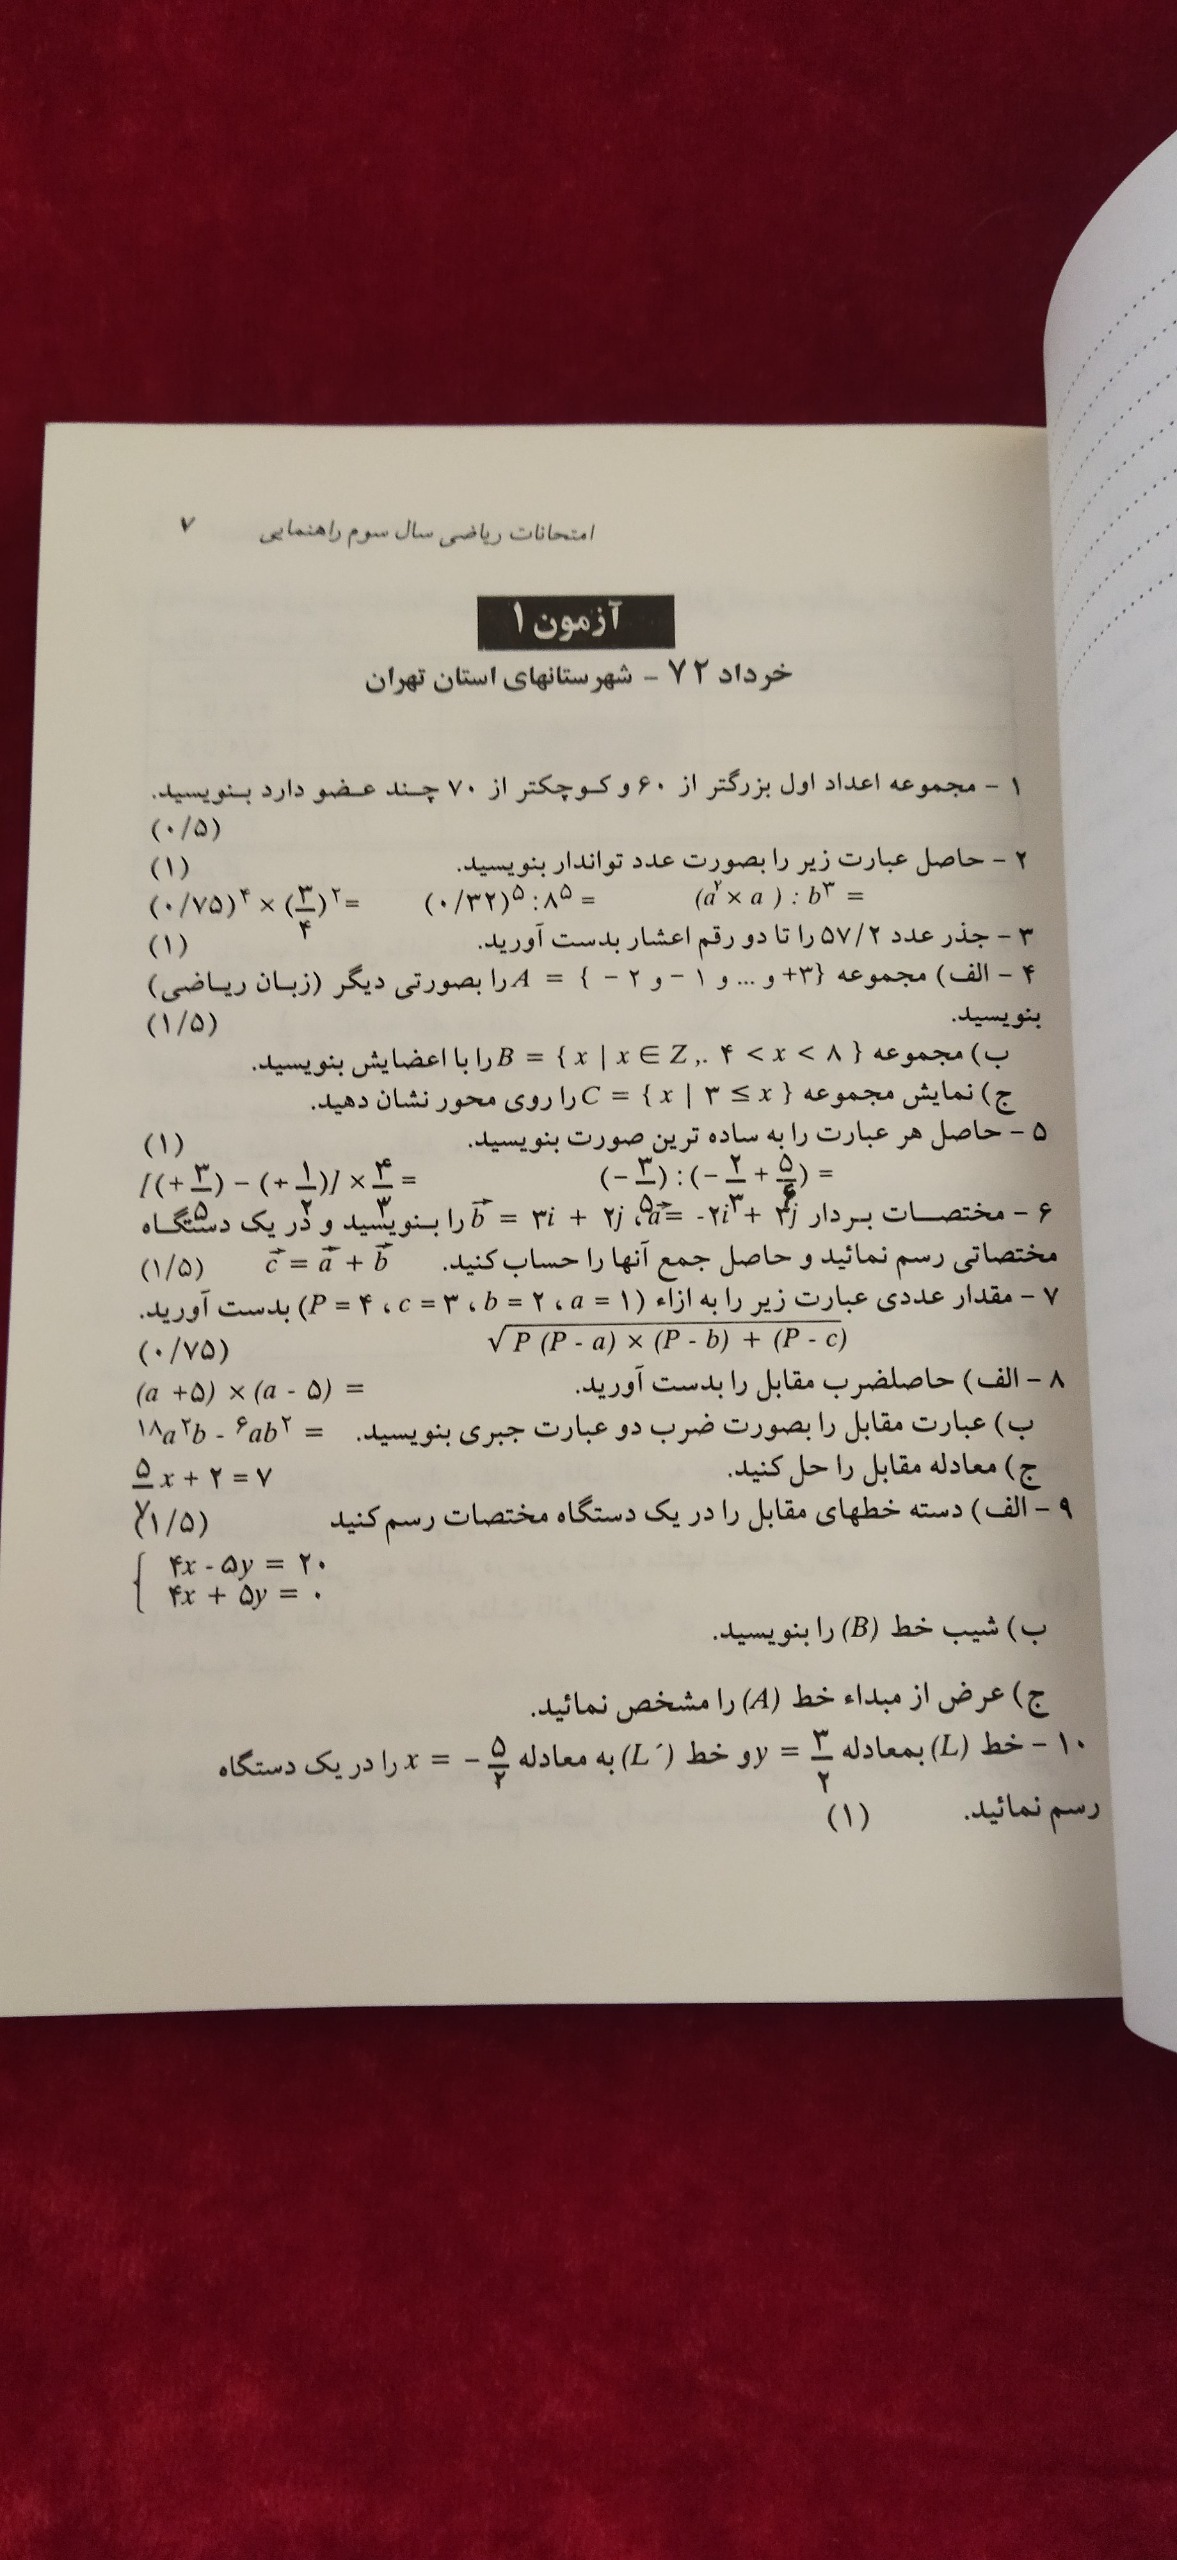 امتحانات ریاضی سال سوم راهنمایی ۷
آزمون ۱
خرداد ۷۲ - شهرستانهای استان تهران
۱ - مجموعه اعداد اول بزرگتر از ۶۰ و کوچکتر از ۷۰ چند عضو دارد بنویسید.
(۰/۵)
۲ - حاصل عبارت زیر را بصورت عدد تواندار بنویسید. (۱)
(۰/۷۵)^۴ × (۳/۴)^۲ = (۰/۳۲)^۵ : ۸^۵ = (a^۲ × a ) : b^۳ =
۳ - جذر عدد ۵۷/۲ را تا دو رقم اعشار بدست آورید. (۱)
۴ - الف) مجموعه A = { - ۲ و - ۱ و ... و +۳} را بصورتی دیگر (زبان ریاضی)
بنویسید. (۱/۵)
ب) مجموعه B = { x | x ∈ Z ,. ۴ < x < ۸ } را با اعضایش بنویسید.
ج) نمایش مجموعه C = { x | ۳ ≤ x } را روی محور نشان دهید.
۵ - حاصل هر عبارت را به ساده ترین صورت بنویسید. (۱)
[(+ ۳/۵) - (+ ۱/۲)] × ۴/۳ = (- ۳/۵) : (- ۲/۳ + ۵/۶) =
۶ - مختصات بردار b = ۳i + ۲j ، a = -۲i + ۳j را بنویسید و در یک دستگاه
مختصاتی رسم نمائید و حاصل جمع آنها را حساب کنید. c = a + b (۱/۵)
۷ - مقدار عددی عبارت زیر را به ازاء (P = ۴ ، c = ۳ ، b = ۲ ، a = ۱) بدست آورید.
√P (P - a) × (P - b) + (P - c) (۰/۷۵)
۸ - الف) حاصلضرب مقابل را بدست آورید. (a +۵) × (a - ۵) =
ب) عبارت مقابل را بصورت ضرب دو عبارت جبری بنویسید. ۱۸a^۲b - ۶ab^۲ =
ج) معادله مقابل را حل کنید. ۵/۷ x + ۲ = ۷
۹ - الف) دسته خطهای مقابل را در یک دستگاه مختصات رسم کنید (۱/۵)
{ ۴x - ۵y = ۲۰
۴x + ۵y = ۰
ب) شیب خط (B) را بنویسید.
ج) عرض از مبداء خط (A) را مشخص نمائید.
۱۰ - خط (L) بمعادله y = ۳/۲ و خط (L´) به معادله x = - ۵/۲ را در یک دستگاه
رسم نمائید. (۱)